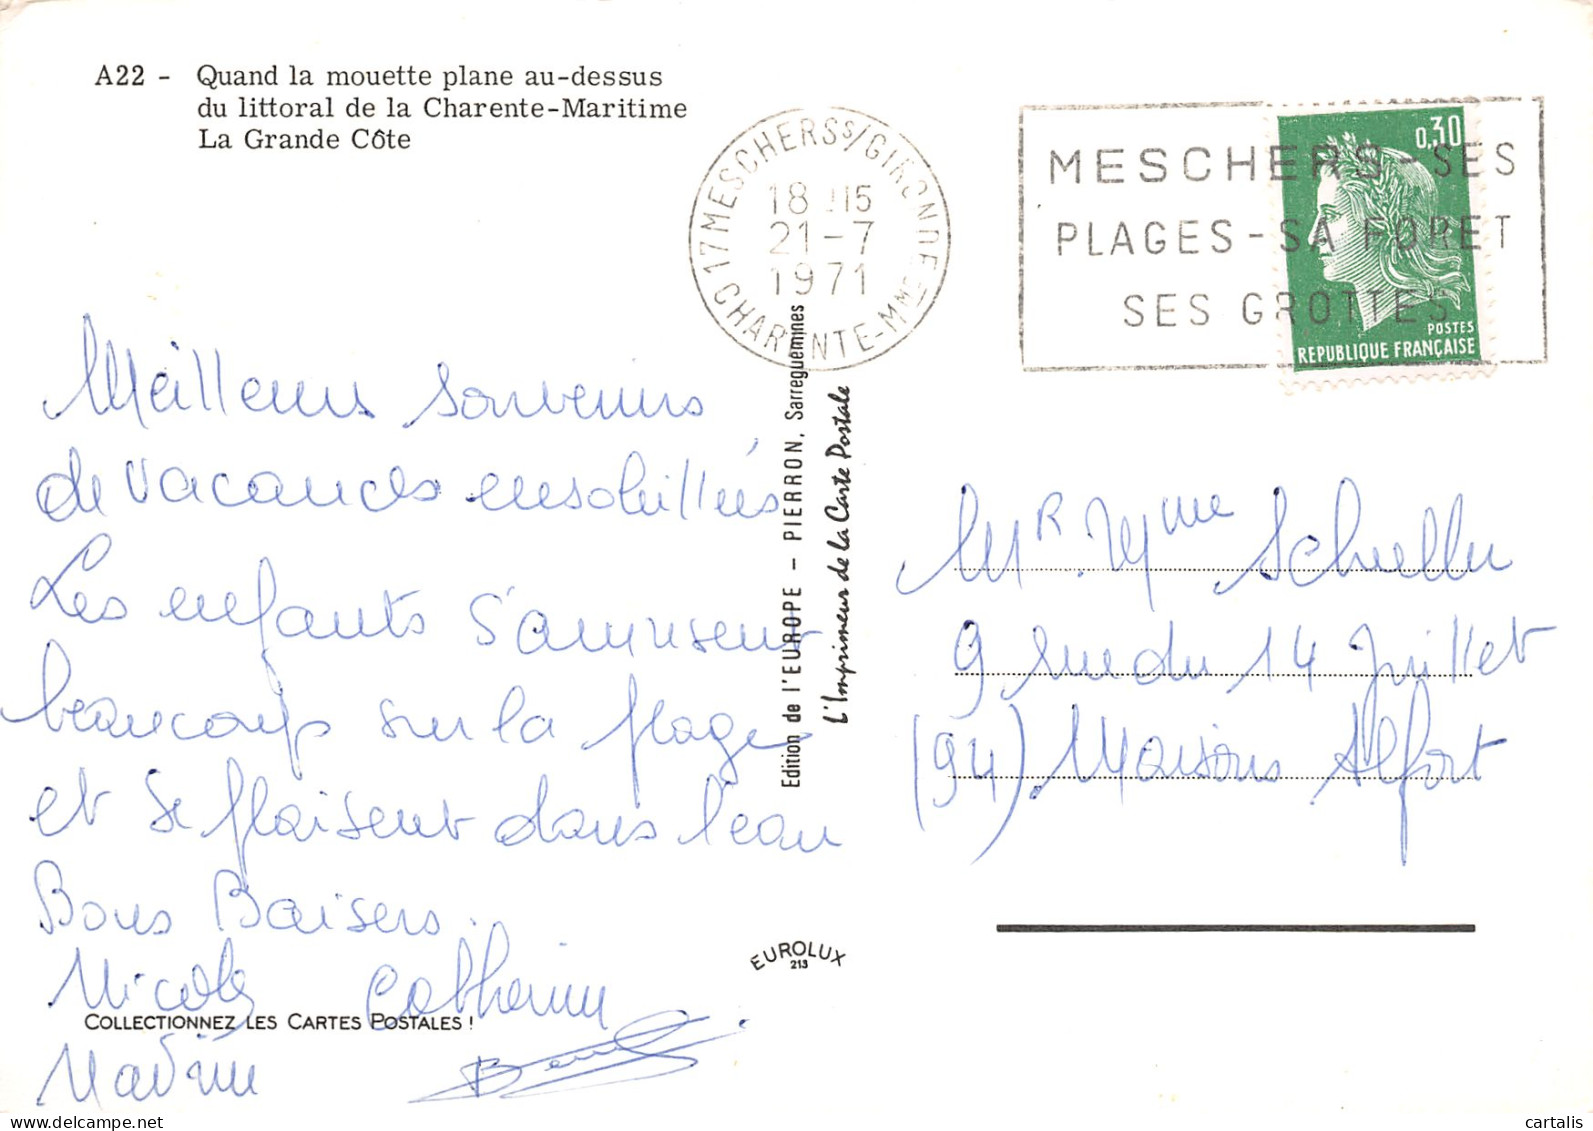 A22 - Quand la mouette plane au-dessus
du littoral de la Charente-Maritime
La Grande Côte
17 MESCHERS S/GIRONDE
18 H15
21-7
1971
CHARENTE-MME
MESCHERS-SES
PLAGES-SA FORET
SES GROTTES
0,30
POSTES
REPUBLIQUE FRANÇAISE
Meilleurs souvenirs
de vacances ensoleillées
Les enfants s'amusent
beaucoup sur la plage
et se plaisent dans l'eau
Bons Baisers.
Nicole Catherine
Nadine
Edition de l'EUROPE - PIERRON, Sarreguemines
L'Imprimeur de la Carte Postale
Mr Mme Schueller
9 rue du 14 Juillet
(94) Maisons Alfort
EUROLUX
213
COLLECTIONNEZ LES CARTES POSTALES !
cartalis